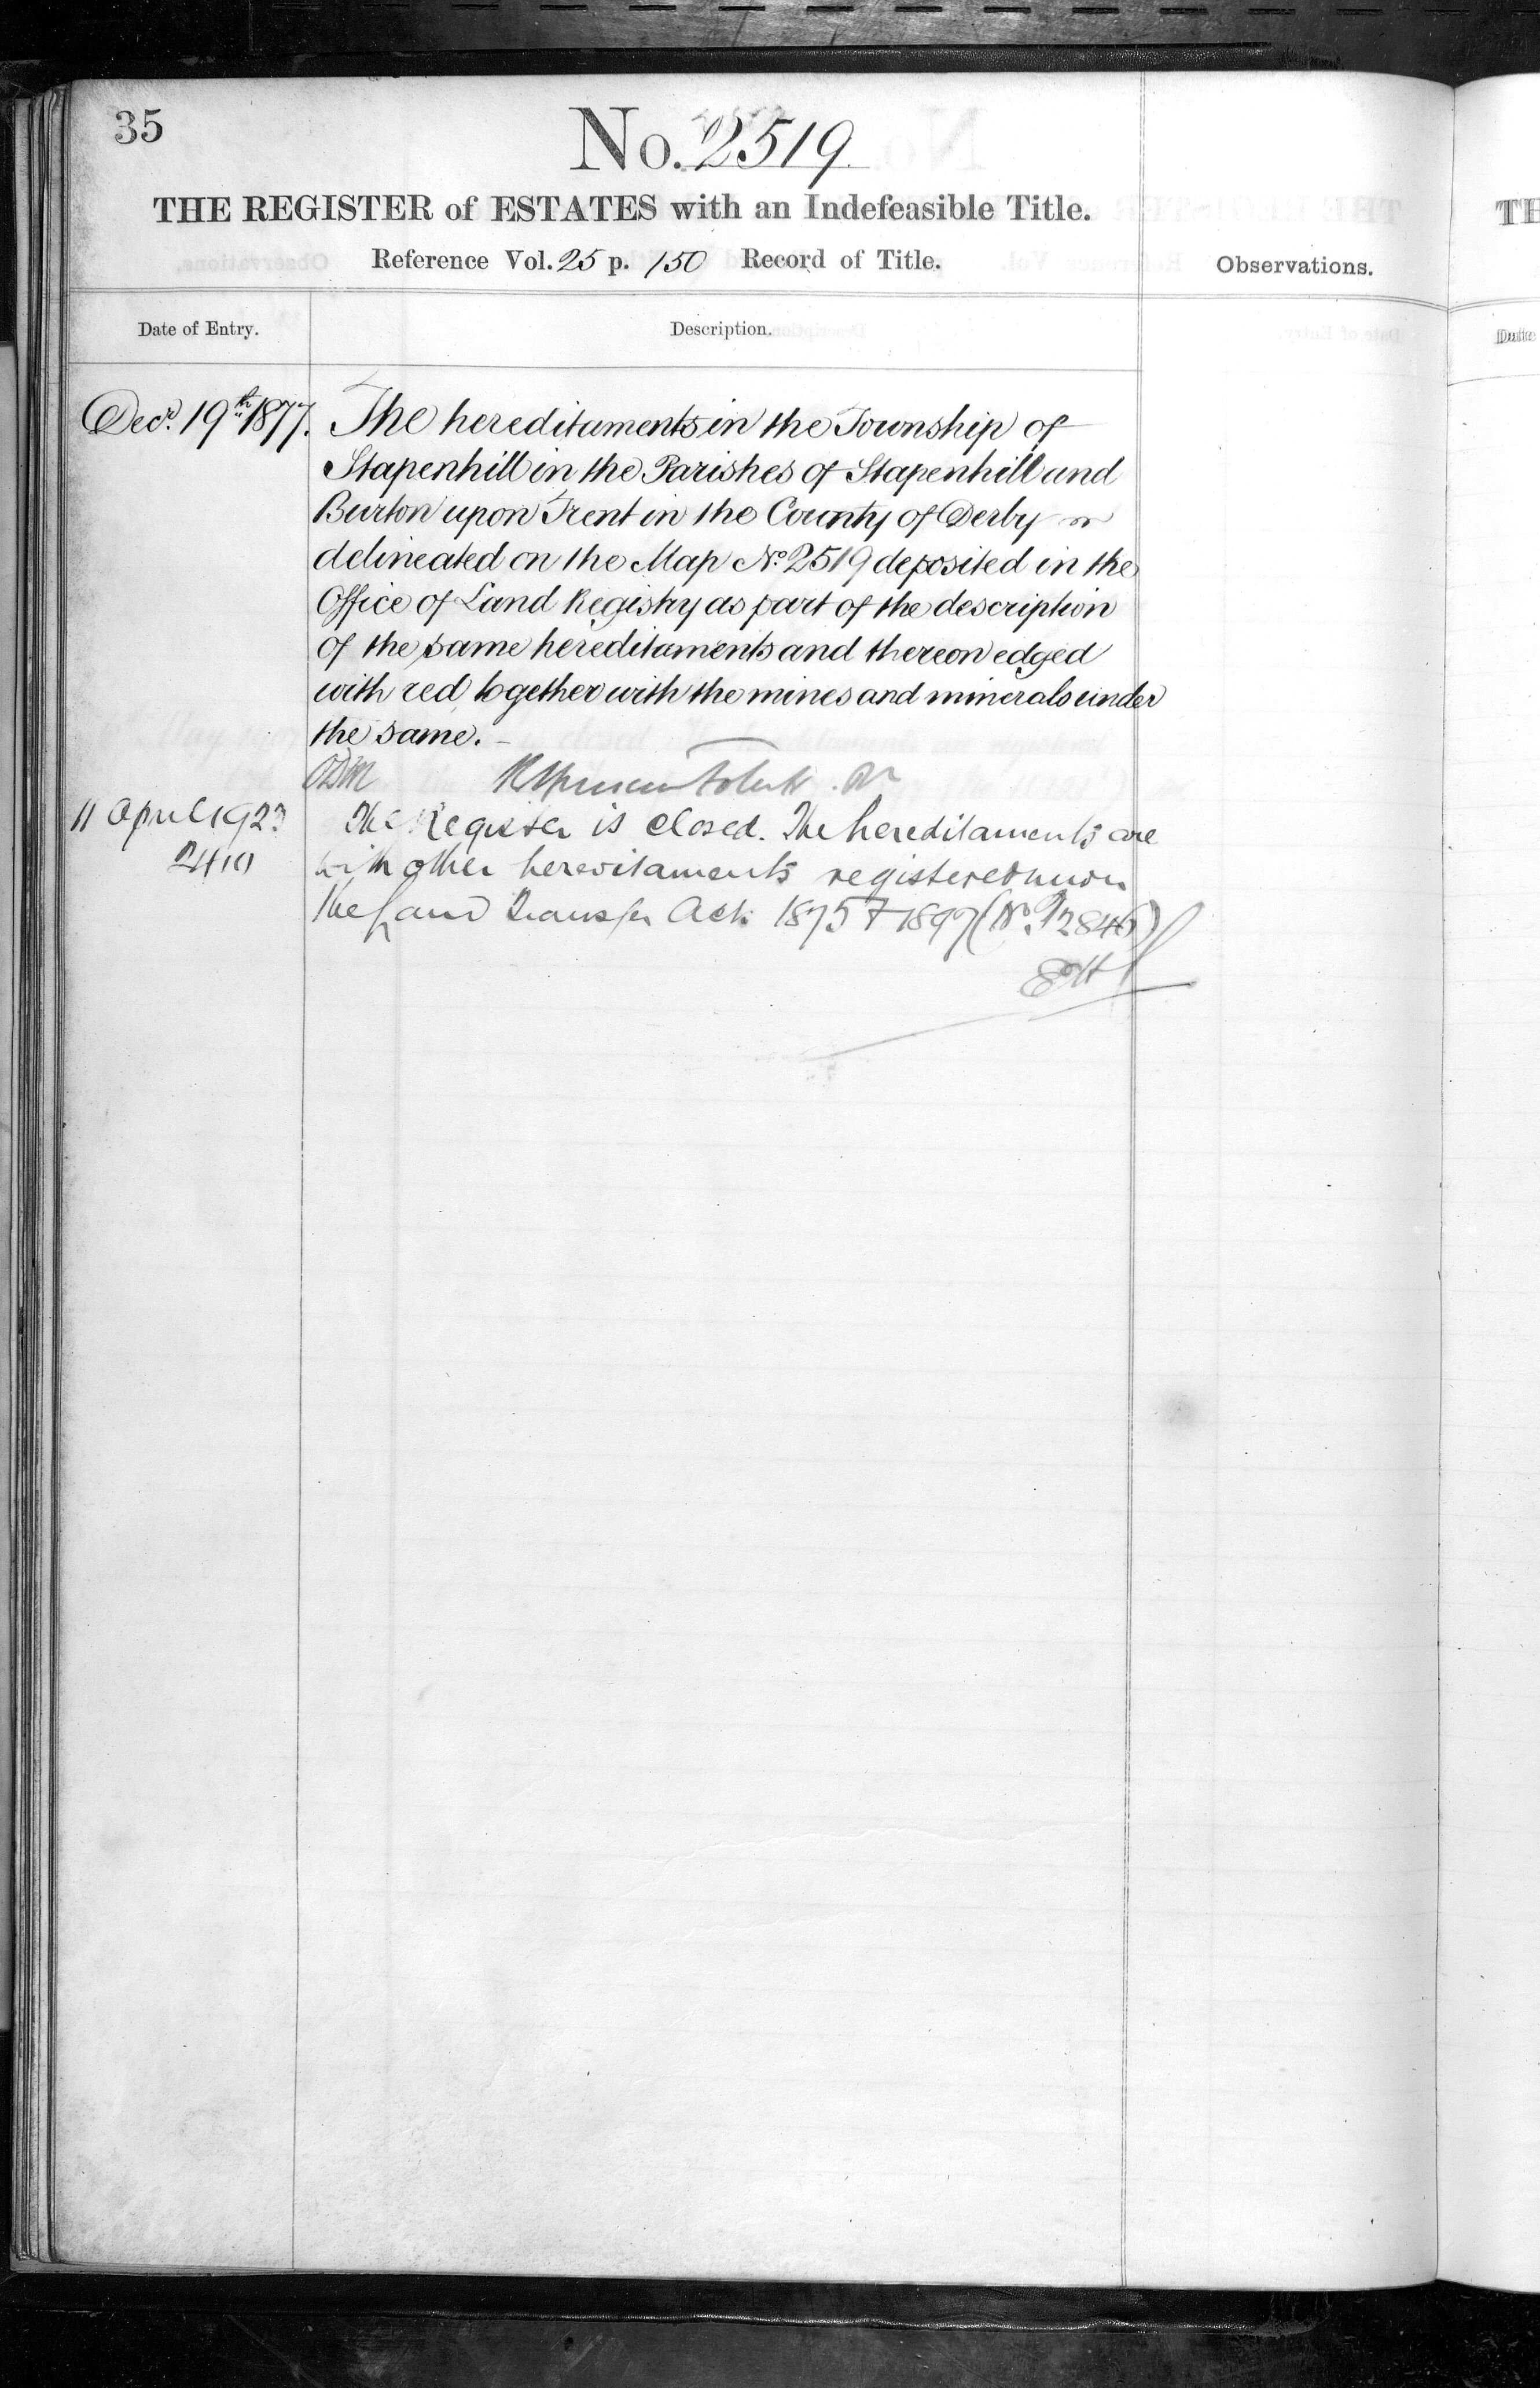 35
No. 2519.
THE REGISTER of ESTATES with an Indefeasible Title.
Reference Vol. 25 p. 150 Record of Title.
Observations.
Date of Entry.
Description.
Decr. 19th 1877. The hereditaments in the Township of
Stapenhill in the Parishes of Stapenhill and
Burton upon Trent in the County of Derby
delineated on the Map No. 2519 deposited in the
Office of Land Registry as part of the description
of the same hereditaments and thereon edged
with red together with the mines and minerals under
the same.
11 April 1923 The Register is closed. The hereditaments are
with other hereditaments registered under
the Land Transfer Acts 1875 & 1897 (No. P2846)
TH